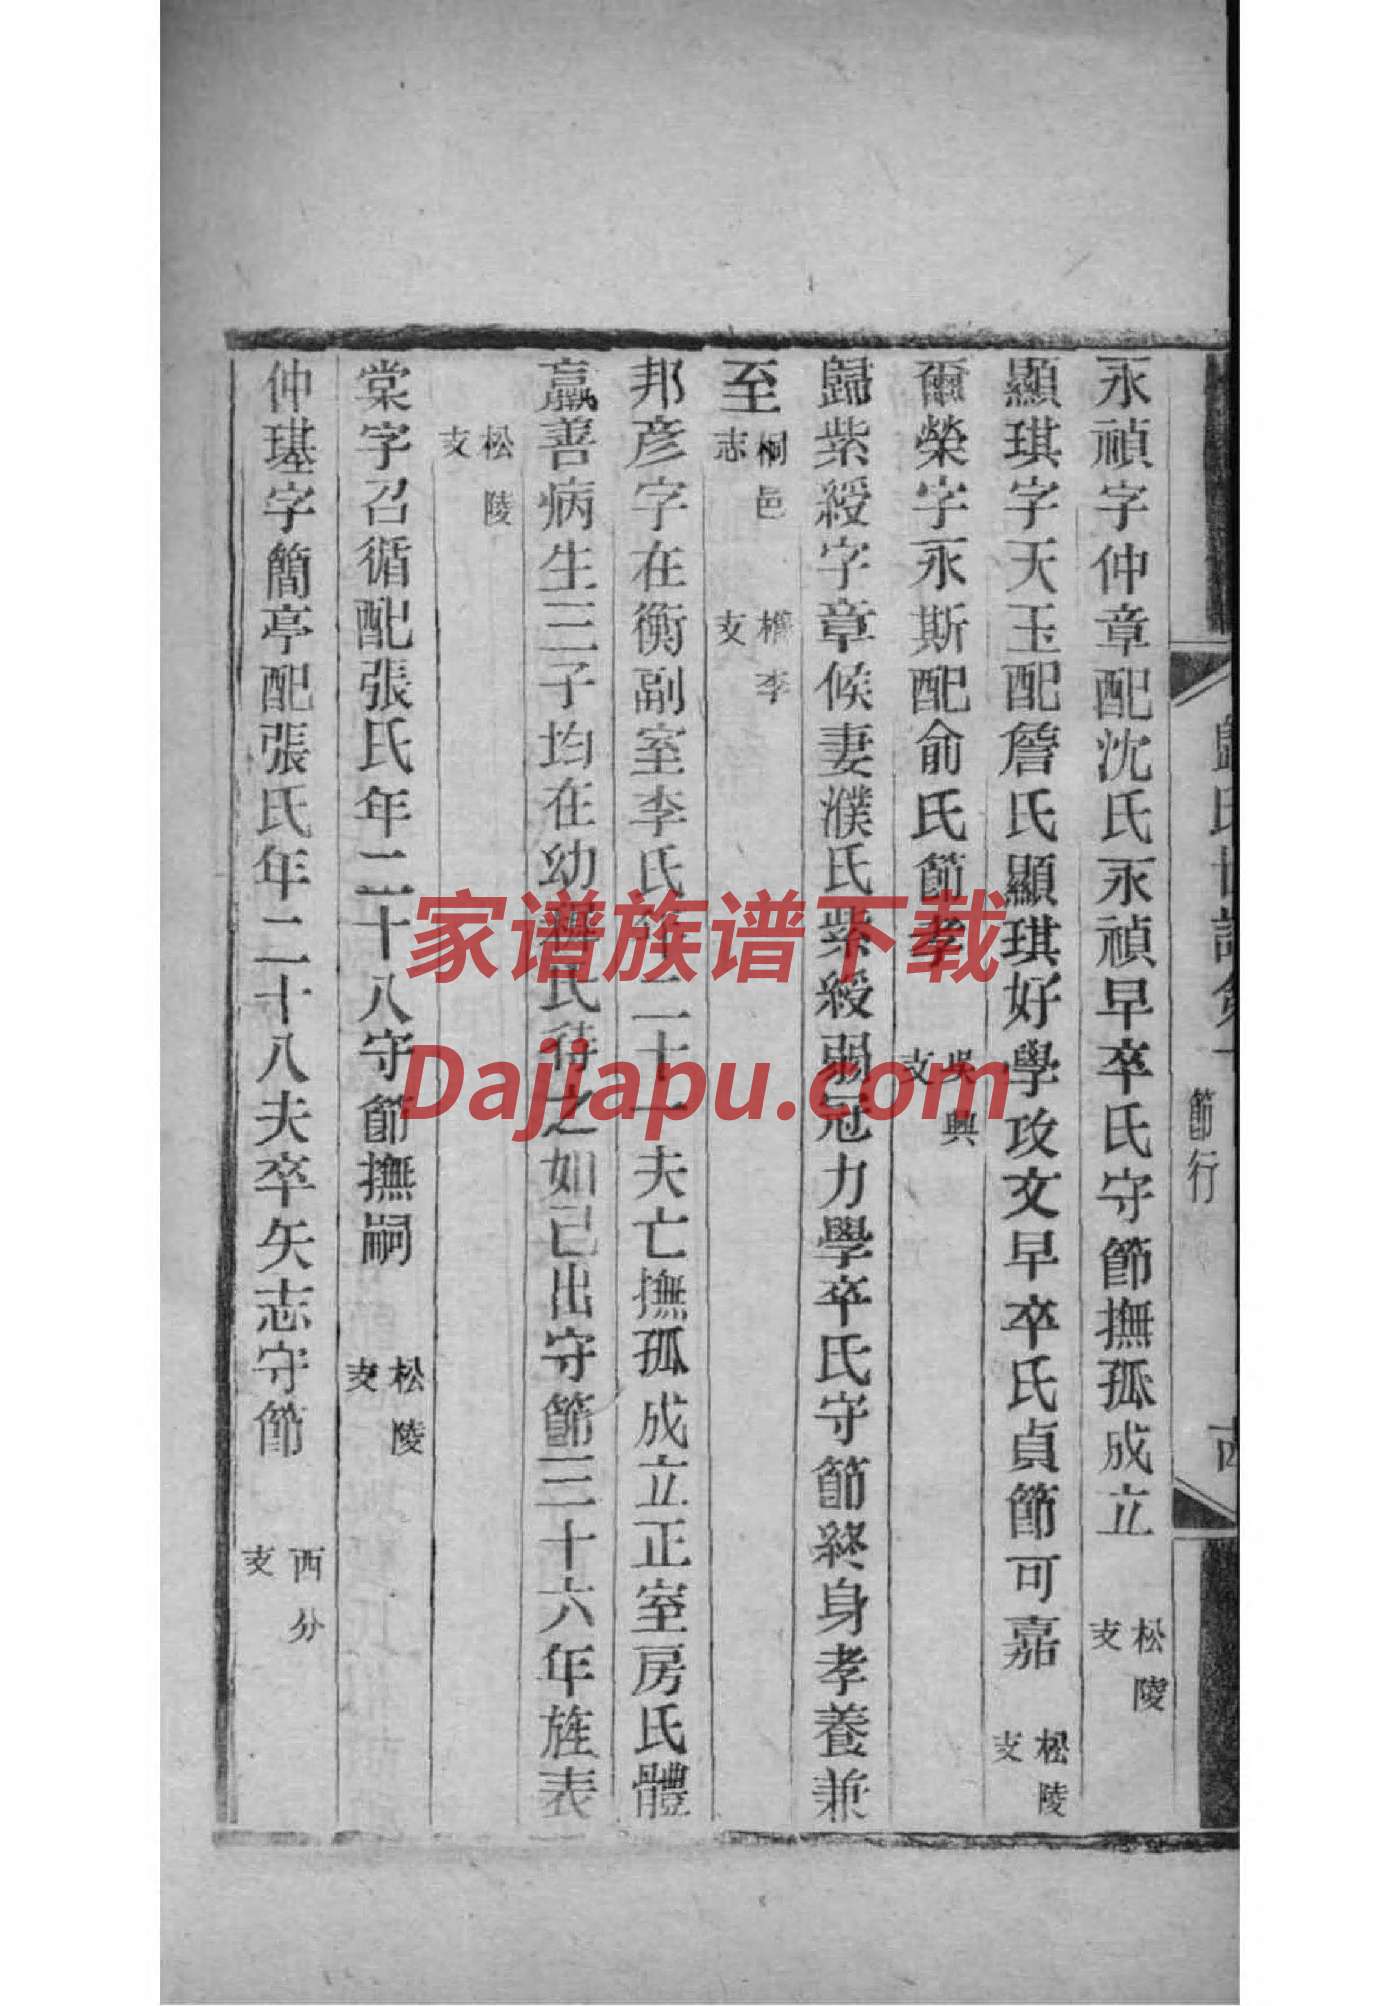 歸氏世譜卷十 節行
永禎字仲章配沈氏永禎早卒氏守節撫孤成立 松陵支
顯琪字天玉配詹氏顯琪好學攻文早卒氏貞節可嘉 松陵支
爾榮字永斯配俞氏節孝 吳興支
歸紫綬字章候妻濮氏紫綬弱冠力學卒氏守節終身孝養兼
至 桐邑志 檇李支
邦彦字在衡副室李氏年二十一夫亡撫孤成立正室房氏體
羸善病生三子均在幼齡氏待之如己出守節三十六年旌表
松陵支
棠字召循配張氏年二十八守節撫嗣 松陵支
仲璂字簡亭配張氏年二十八夫卒矢志守節 西分支
家谱族谱下载
Dajiapu.com